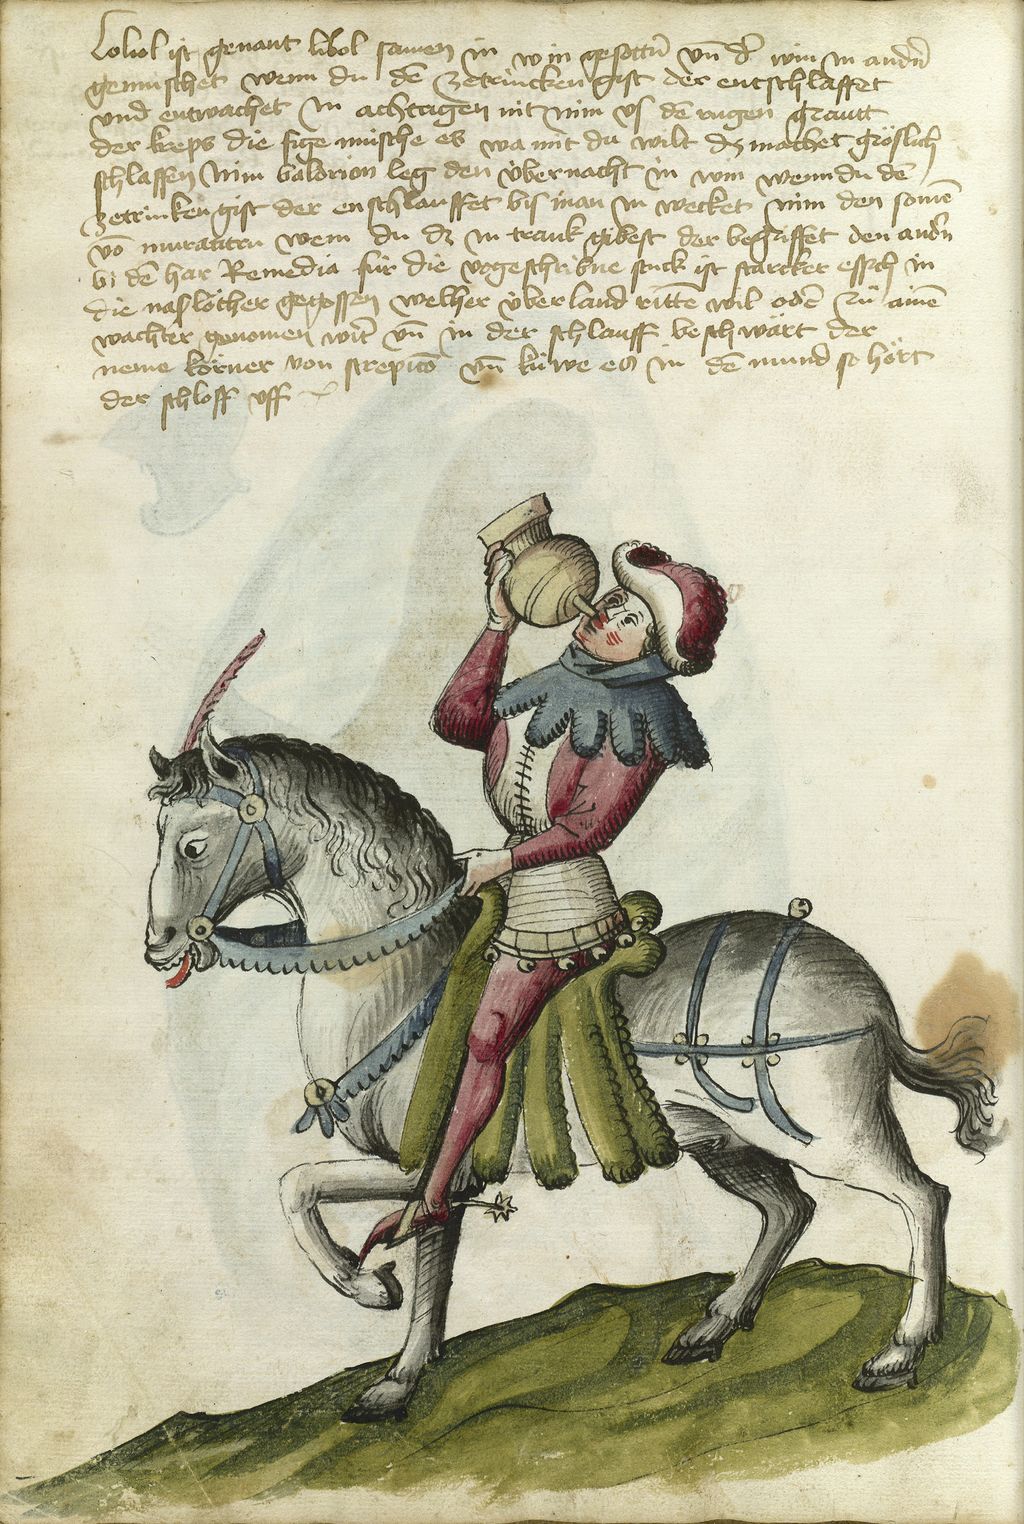 Loliol ist genant libol samen in win gesottñ vñ dē win in andñ
gemischet wem du dē zetrincken gist der entschlaffet
vnd entwachet in achtagen nit nim vs dē magen
der kreps die fige mische es wa mit du wilt dz machet gröslich
schlaffen Nim baldrion leg den übernacht in win wenn du dē
zetrinken gist der enschlauffet bis man in wecket nim den somē
vō wem du dz in trank gibest der begriffet den andñ
bi dē har Remedia für die vogeschribne stuck ist starcker essich in
die naslöcher gegossen welher überland rittē wil odē zů ainē
wachter genomen wirt vñ in der schlauff beschwärt der
neme körner von vñ küwe es in dē mund so hört
der schloff uff